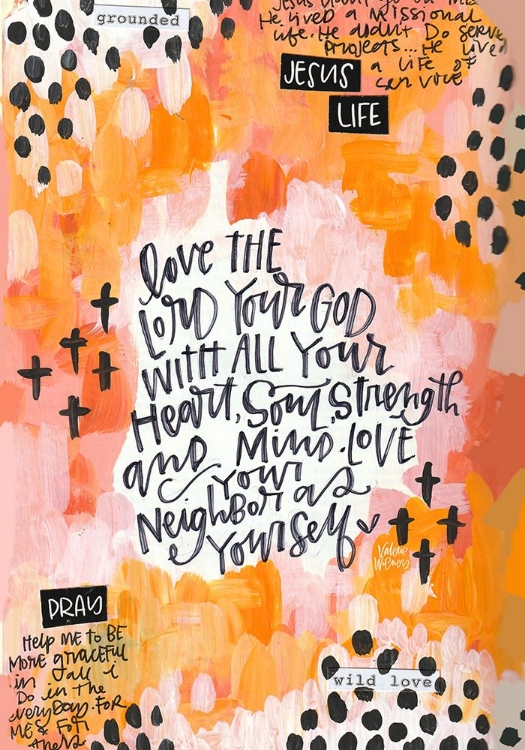 grounded
Jesus
He lived a Missional
life. He didn't Do serve
Projects... He lived
a life of
JESUS
LIFE
Love THE
LORD Your GOD
WITH ALL Your
Heart, Soul, Strength
and Mind. LOVE
Your
Neighbor as
Yourself
Valerie
Wieners
PRAY
Help ME to BE
More graceful
in all i
Do in the
FOR
ME & FOR
wild love